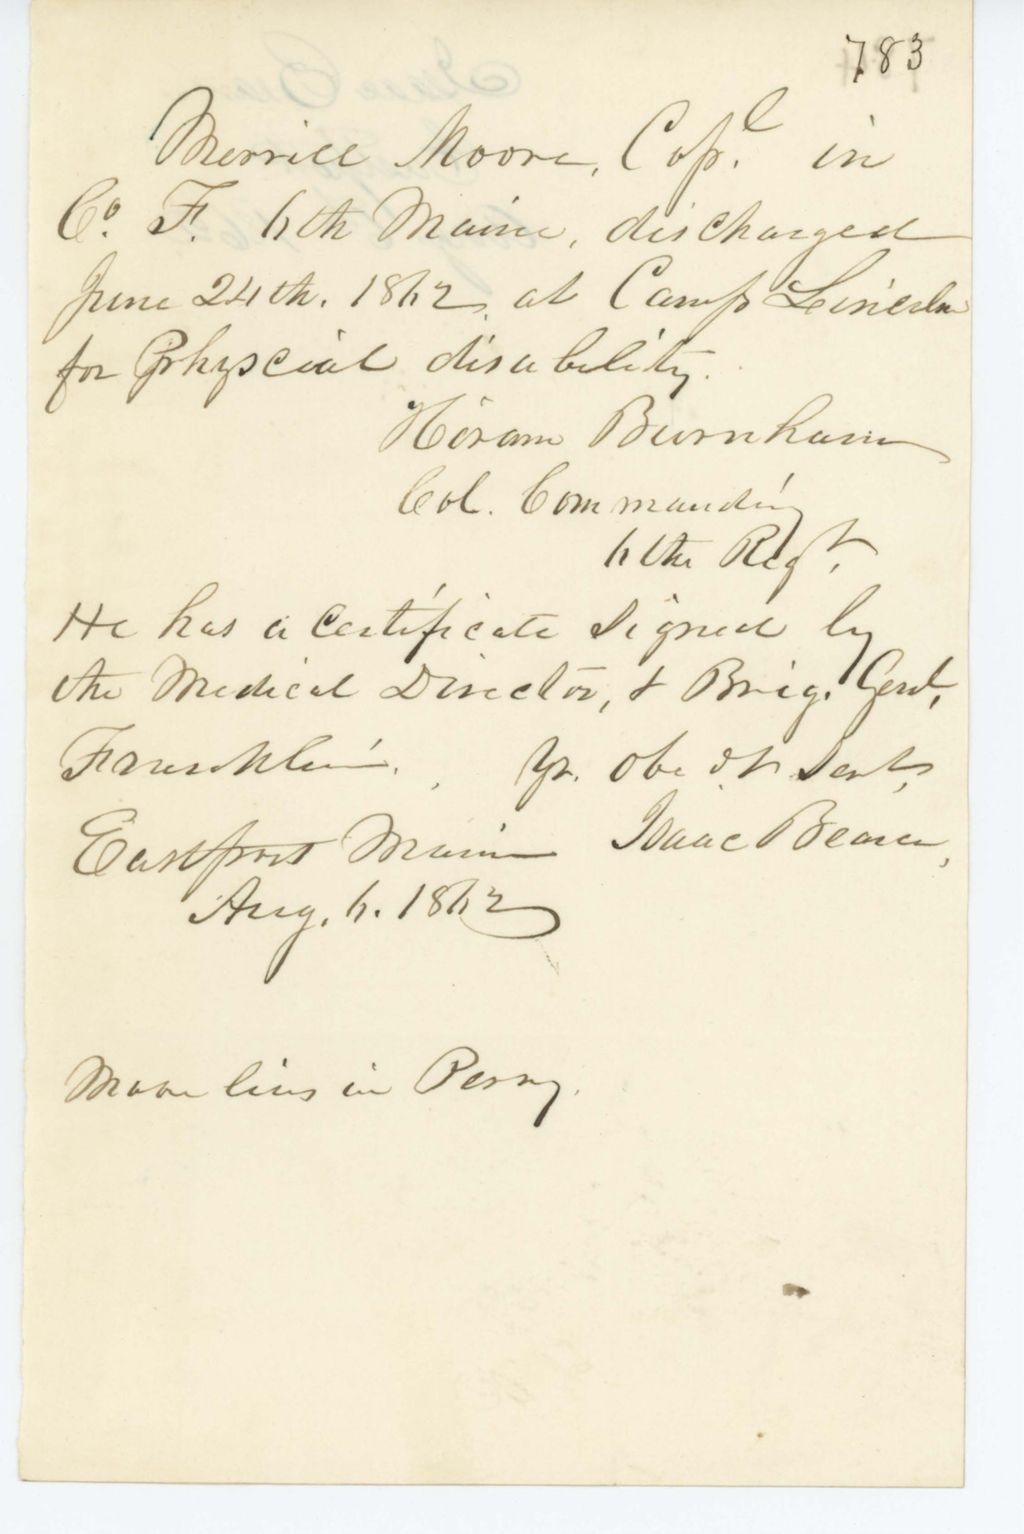 783
Merrill Moore, Copl. in
Co. F. 6th Maine, discharged
June 24th. 1862, at Camp Lincoln
for Physcial disability.
Hiram Burnham
Col. Commanding
6the Regt.
He has a certificate signed by
the Medical Director, & Brig. Genl,
Franklin. Yr. obe dt Servt,
Eastport Maine Isaac Beman,
Aug. 6. 1862
Moore lives in Perry.